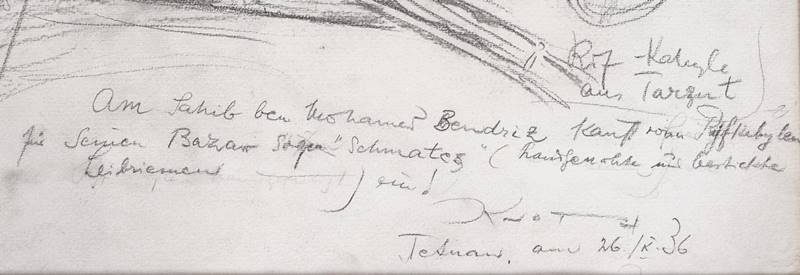 Rif-Kabyle
aus Tarzut
Am Sahib ben Mohamed Bendriz kauft von Riffkabylen
für seinen Bazar sogen. "Schmates" (handgenähte und bestickte
Leibriemen) ein!
Tetuan, am 26./X. 36